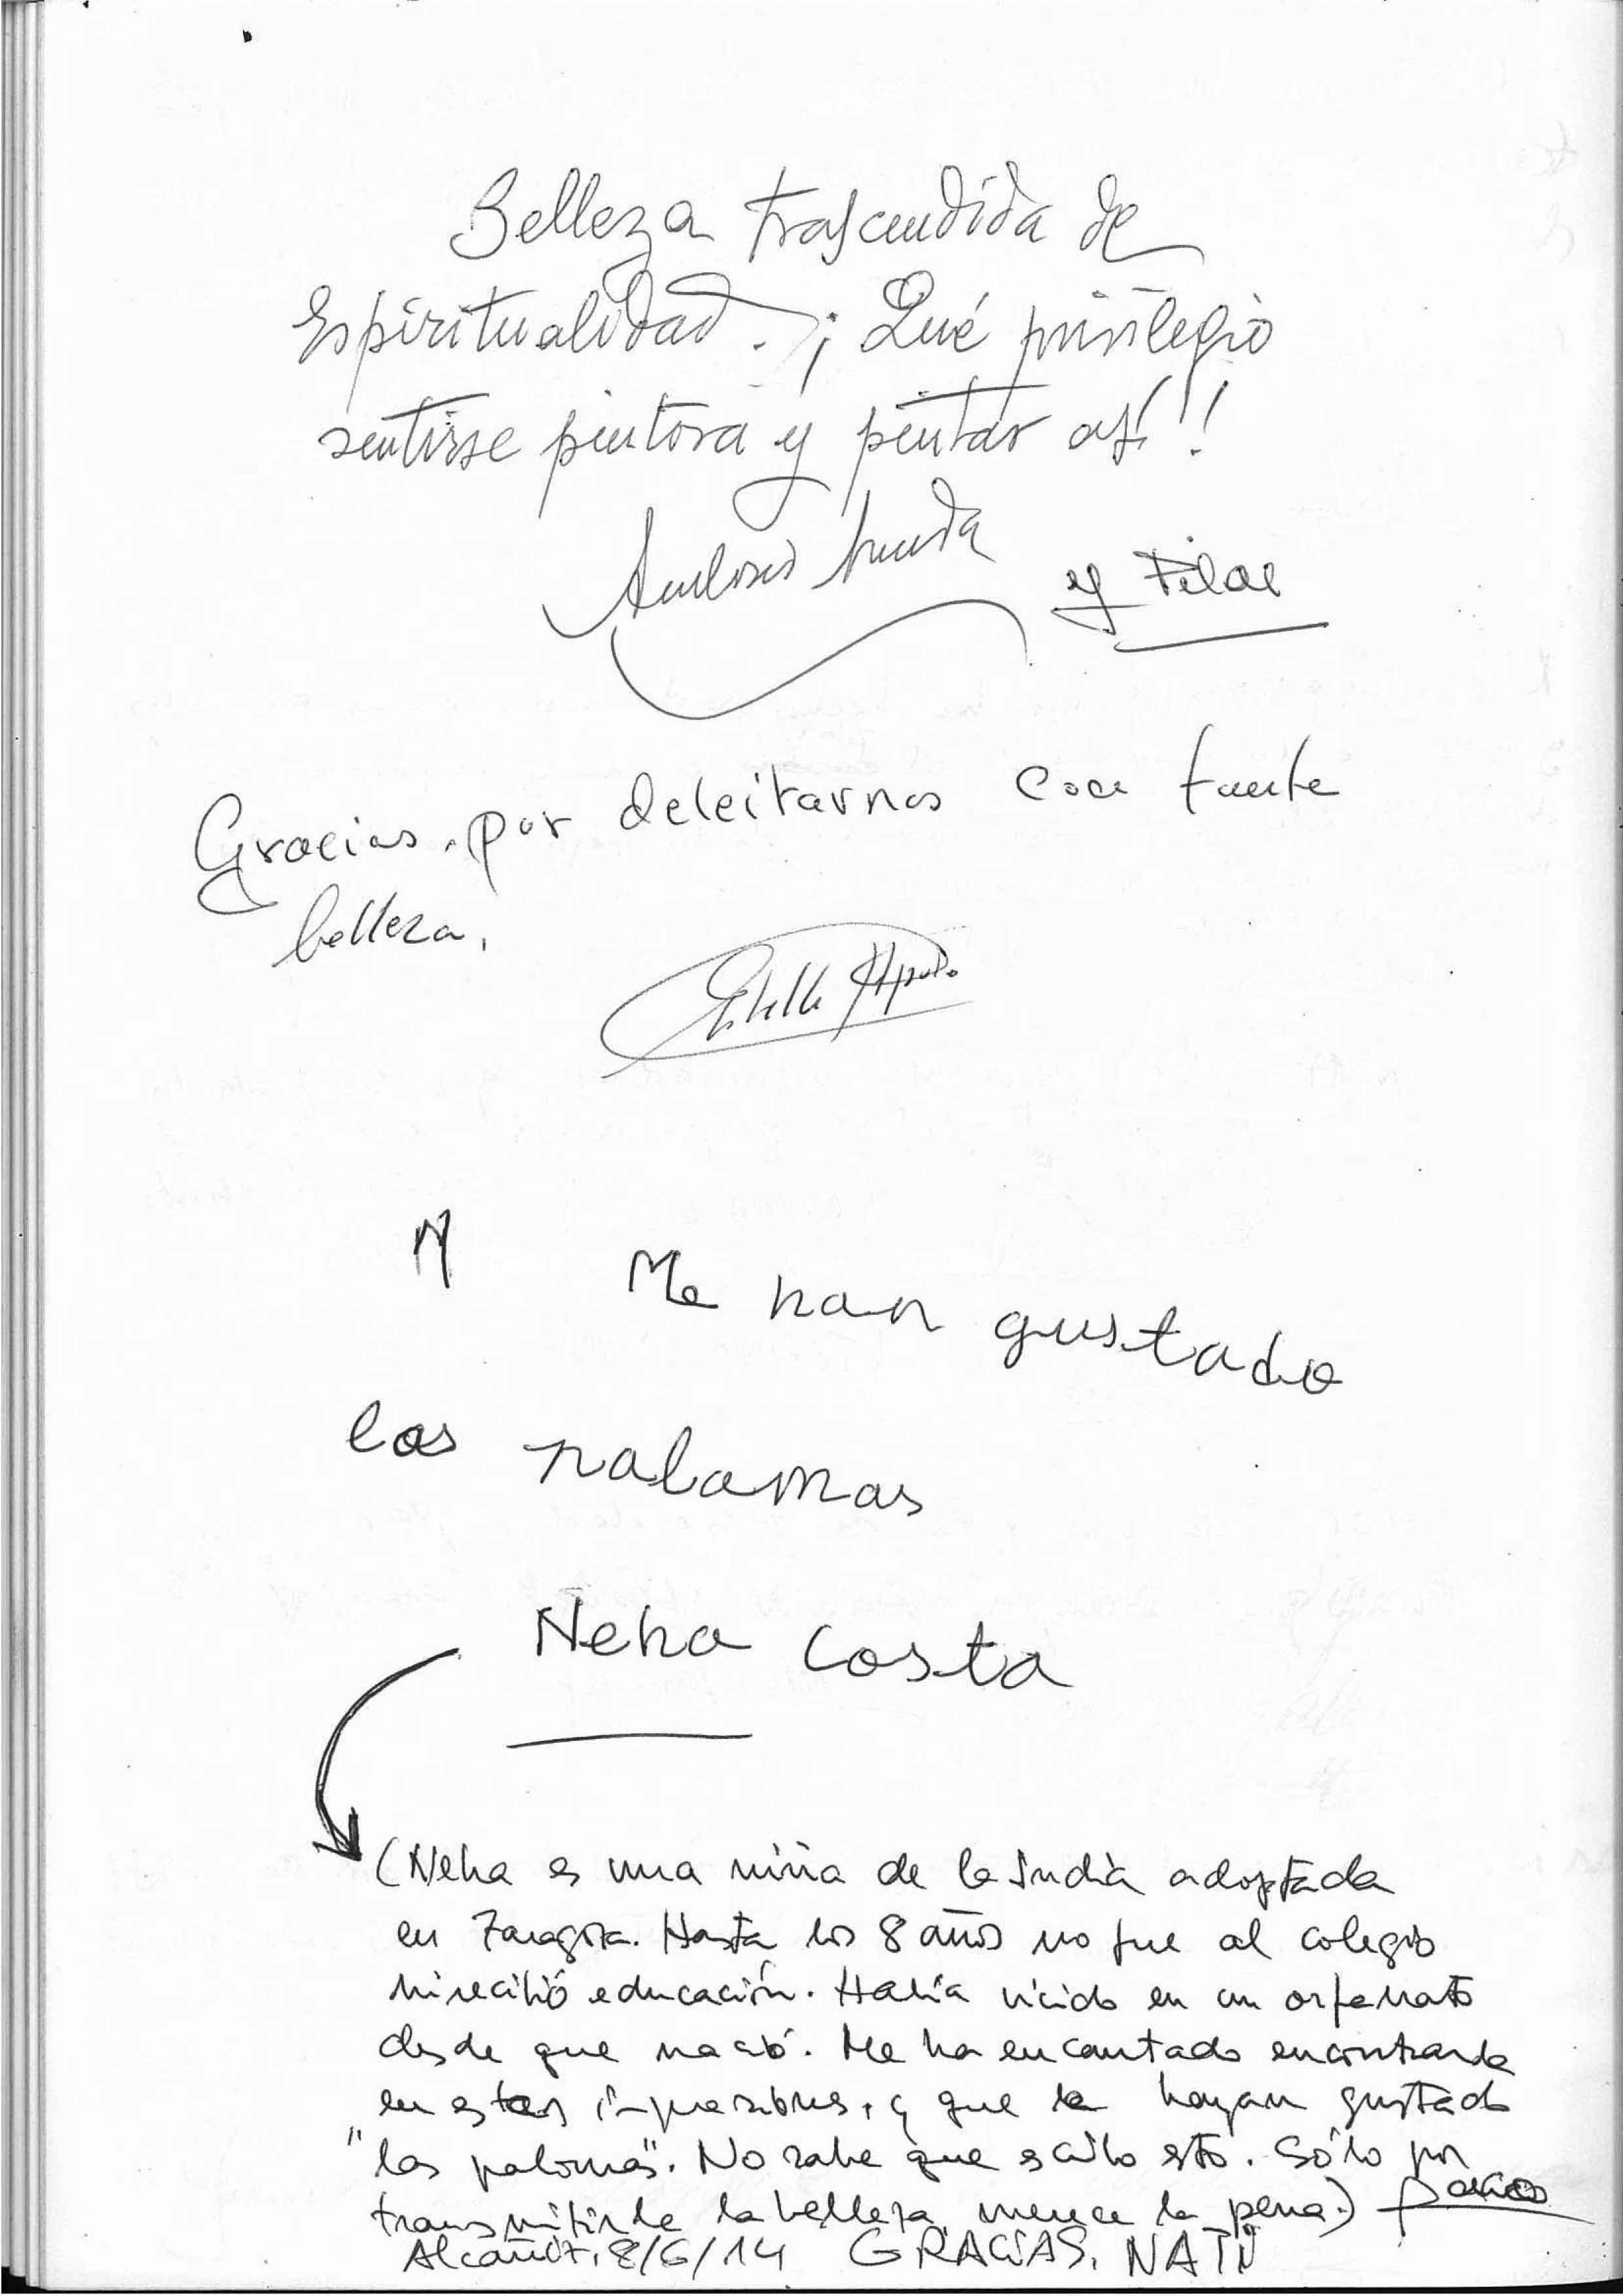 Belleza trascendida de
Espiritualidad. ¡Qué privilegio
sentirse pintora y pintar así!!
y Pilar
Gracias, por deleitarnos con tanta
belleza.
M Me han gustado
las palamas
Neha Costa
(Neha es una niña de la India adoptada
en Zaragoza. Hasta los 8 años no fue al colegio
ni recibió educación. Había vivido en un orfanato
desde que nació. Me ha encantado encontrarla
en estas impresiones, y que le hayan gustado
"las palomas". No sabe que escribo esto. Sólo por
transmitirle la belleza merece la pena.)
Alcañiz, 8/6/14 GRACIAS, NATI